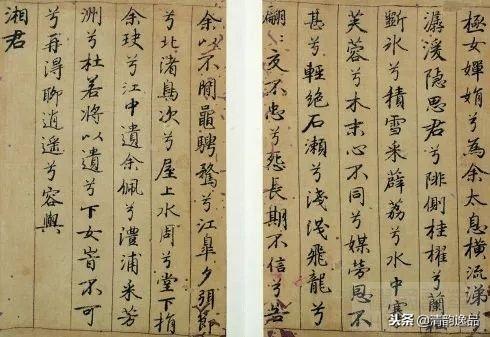 極女嬋娟兮為余太息橫流涕兮
潺湲隱思君兮陫側桂櫂兮蘭
斲冰兮積雪采薜荔兮水中搴
芙蓉兮木末心不同兮媒勞恩不
甚兮輕絕石瀬兮淺淺飛龍兮
翩〻交不忠兮怨長期不信兮告
余以不閒鼂騁騖兮江皋夕弭節
兮北渚鳥次兮屋上水周兮堂下捐
余玦兮江中遺余佩兮澧浦采芳
洲兮杜若將以遺兮下女旹不可
兮再得聊逍遥兮容與
湘君
头条 @清韵逸品